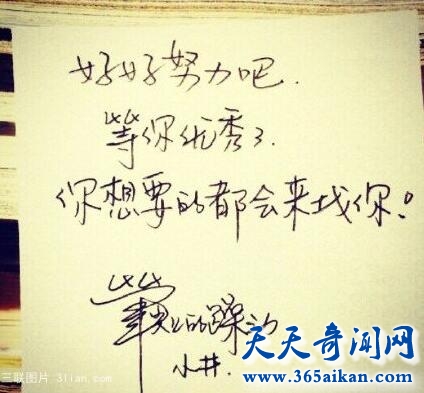 好好努力吧.
等你优秀了.
你想要的都会来找你!
的躁动
小井.
天天奇闻网
www.365aikan.com
三联图片 3lian.com